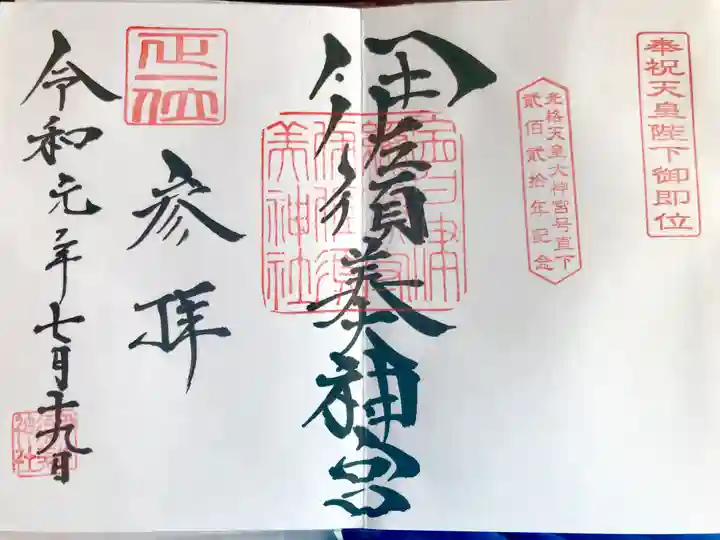 奉祝天皇陛下御即位
光格天皇大神宮号直下
貳佰貳拾年記念
伊佐須美神宮
伊佐須
美神社
正一位
参拝
令和元年七月十九日